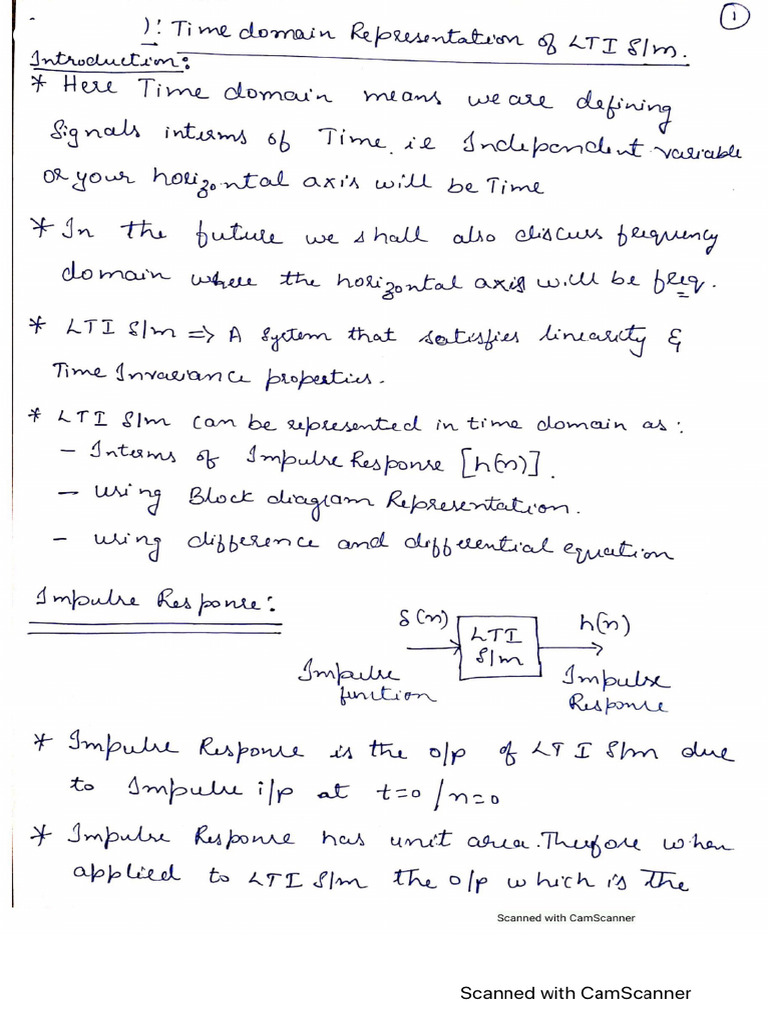 1
): Time domain Representation of LTI S/m.
Introduction:
* Here Time domain means we are defining
Signals interms of Time. i.e Independent variable
or your horizontal axis will be Time
* In the future we shall also discuss frequency
domain where the horizontal axis will be freq.
* LTI S/m => A System that satisfies linearity &
Time Invariance properties.
* LTI S/m can be represented in time domain as:
- Interms of Impulse Response [h(n)].
- using Block diagram Representation.
- using difference and differential equation
Impulse Response:
δ(n)
LTI
S/m
h(n)
Impulse
function
Impulse
Response
* Impulse Response is the o/p of LTI S/m due
to Impulse i/p at t=0 / n=0
* Impulse Response has unit area. Therfore when
applied to LTI S/m the o/p which is the
Scanned with CamScanner
Scanned with CamScanner